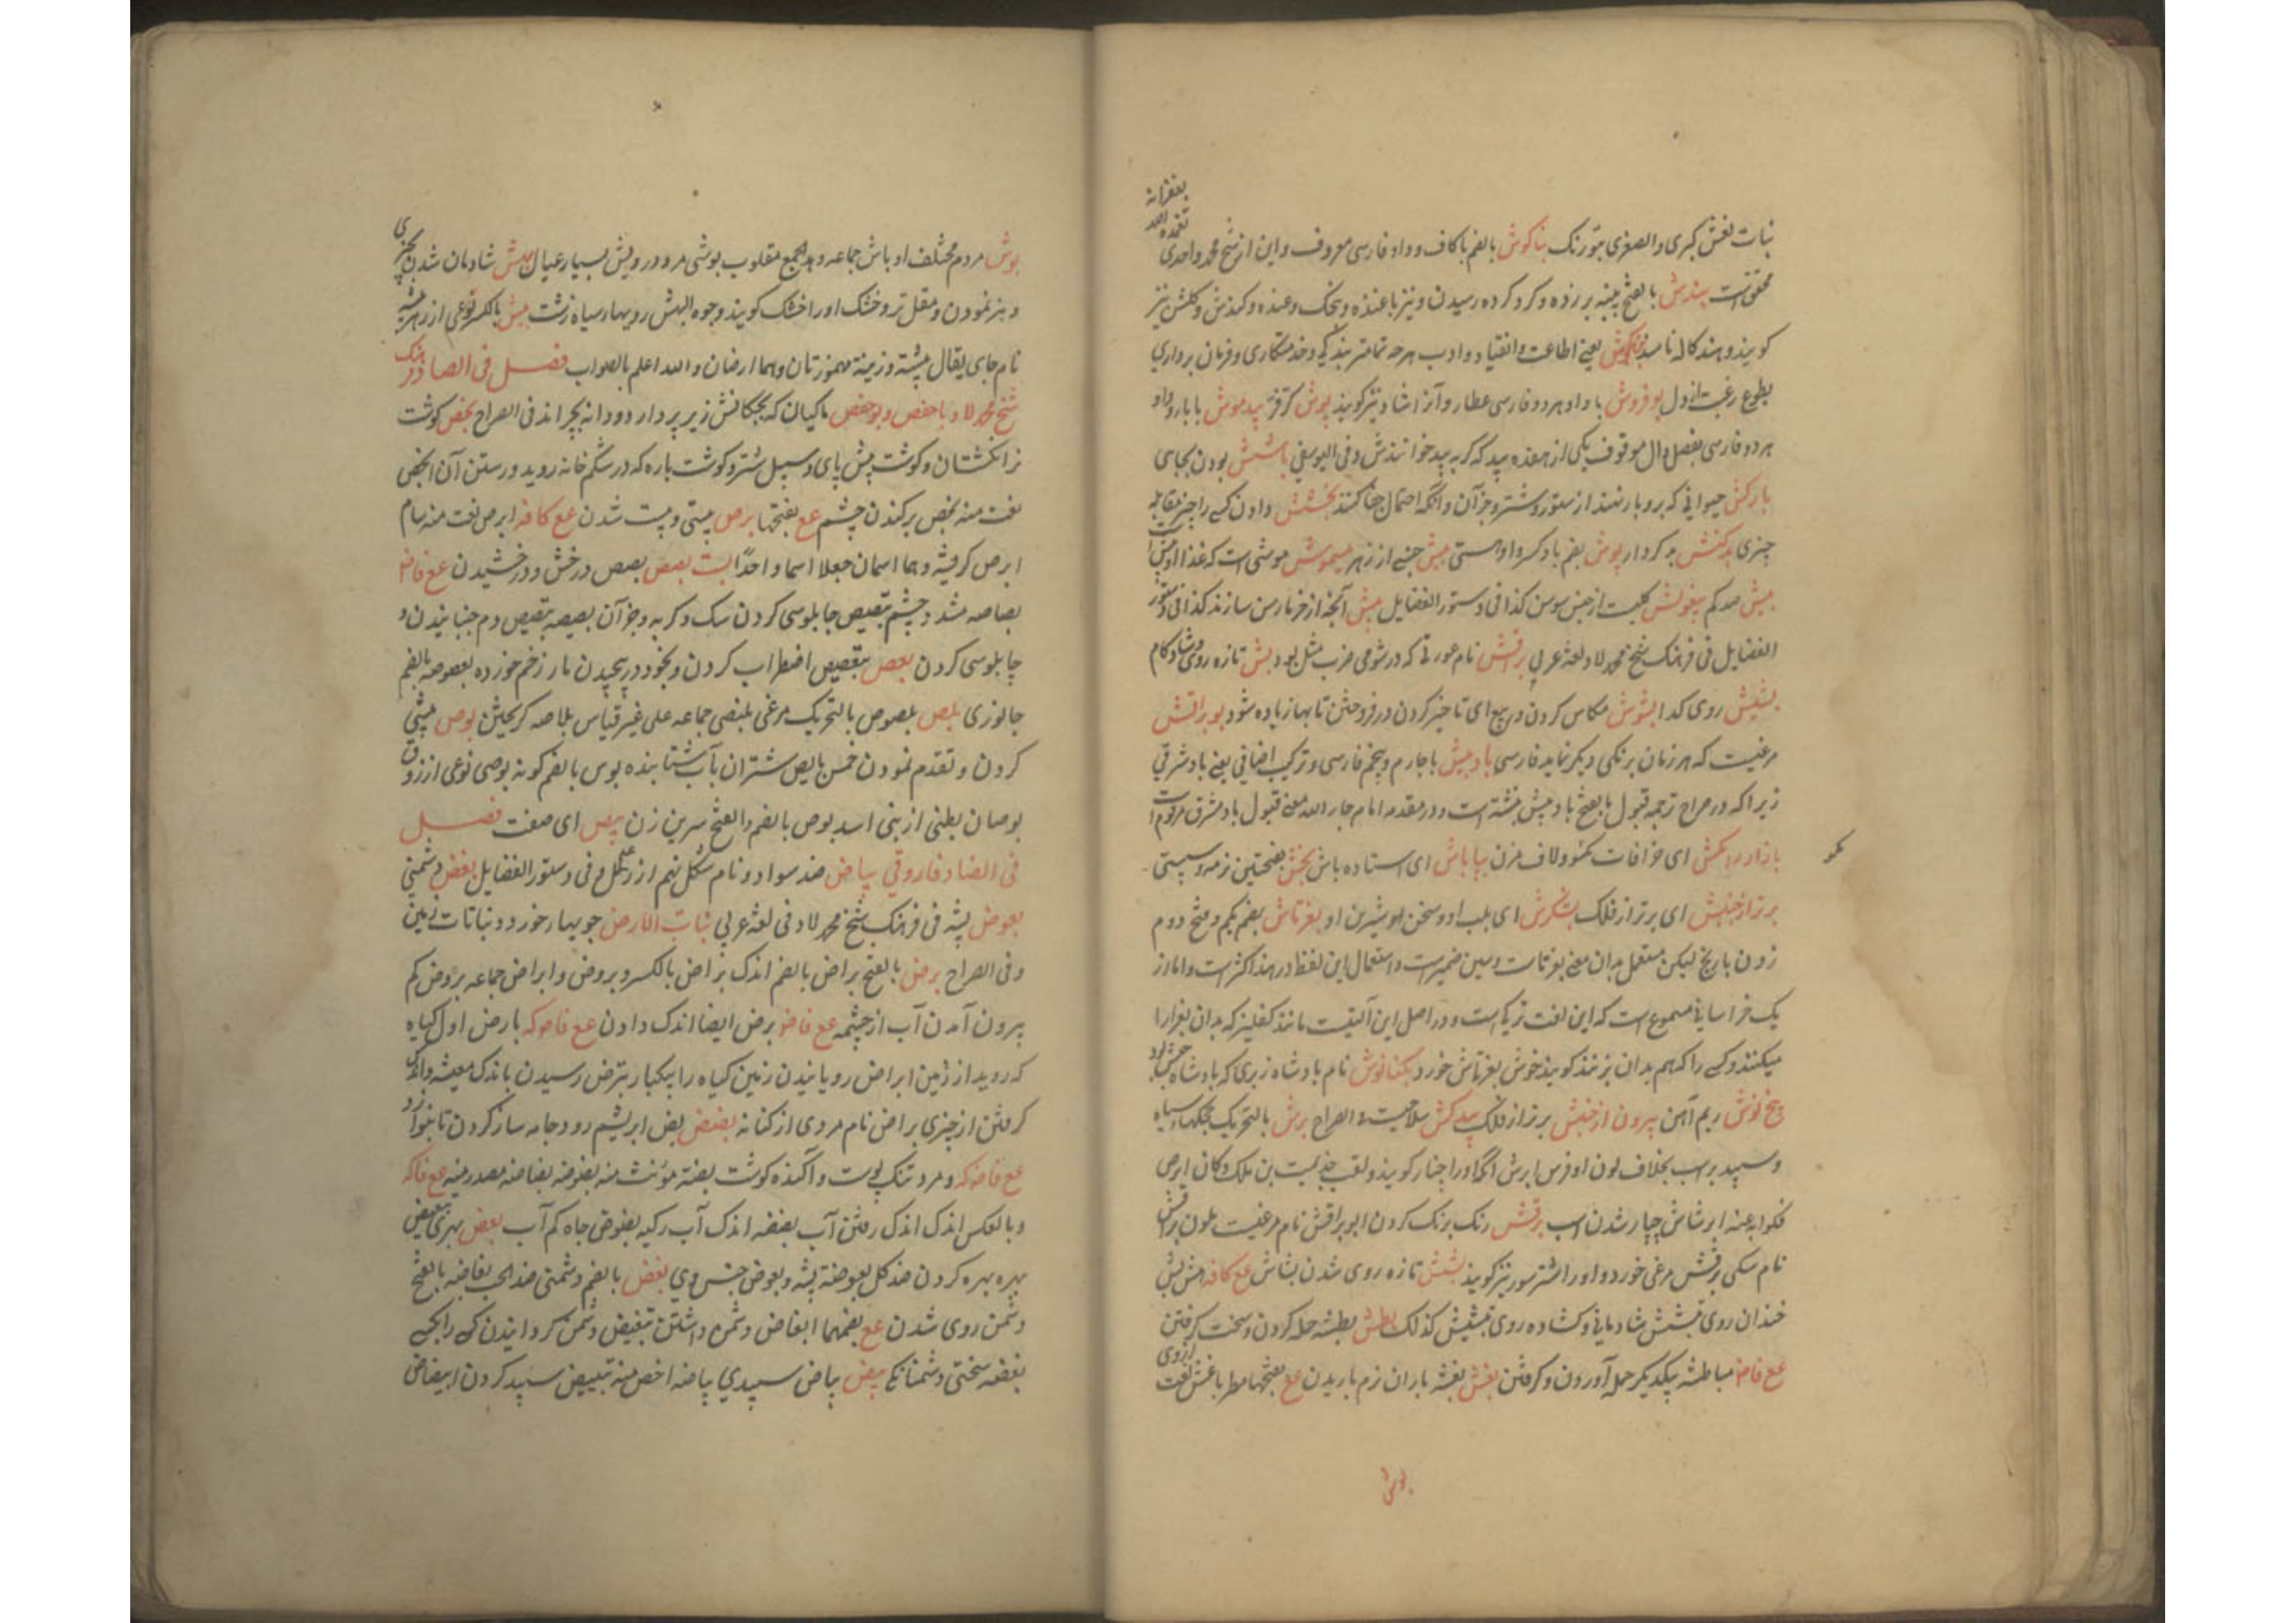 بغفرانه
تغمده الله
نبات نعش کبری والصغری بتورنک بناکوش بالضم باکاف وواو فارسی معروف واین از شیخ محمد واحدی
محقق است بندش بالفتح پنبه برزده وکرد کرده رسیدن ونیز باغنده وغنده وکندش وکلش نیز
کویند وهند کاله نامند یعنی اطاعت وانقیاد وادب هرچه تمامتر بندکی وخدمتکاری وفرمان برداری
بطوع رغبت ازدل بوفروش باواو هردو فارسی عطار وآنرا شاد نیز کویند پوش بیدموش بابا وواو
هردو فارسی بفصل دال موقوف یکی از هفده بید که کربه بید خوانندش وفی الیوسفی باشش بودن بجای
بارکش حیوانی که بروبار نهند از ستور وشتر وجز آن وانکه احتمال جفا کنند بخشش دادن کسی را چیز مقابله
چیزی بدکنش بدکردار پوش بضم بادکر واو هستی بیش جنسی از زهر بیموش موشی است که غذا او بیش است
بیش ضد کم بیغوش کلیست از جنس سوسن کذا فی دستور الفضایل بیش آنچه از خرما رسن سازند کذا فی دستور
الفضایل فی فرهنک شیخ محمد لاد لغة عربی براقش نام عورتی که در شومی ضرب مثل بود بش تازه روی وشاد کام
بشیش روی کدا بشوش مکاس کردن در بیع ای تاخیر کردن در فروختن تابها زیاده شود بوبراقش
مرغیست که هر زمان برنکی دیکر نماید فارسی بادبیش باجارم وپنجم فارسی وترکیب اضافی یعنی باد شرقی
زیراکه در صراح ترجمه قبول بالفتح باد پیش نبشته است ودر مقدمه امام جار الله معنی قبول باد مشرق مرقوم است
بازار راکش ای خرافات کمو ولاف مزن بپاباش ای استاده باش بخش بفتحتین نرمه وسستی
کمو
برتر از جنبش ای برتر از فلک بشکرش ای بلب او وسخن شیرین او بغرتاش بضم یکم وفتح دوم
زدن باریخ لیکن مستعمل بدان معنی بغرتاست وسین ضمیرست واستعمال این لفظ در هند اکثر است واما از
یک خراسانی مسموع است که این لغت ترکیست ودر اصل این آلتیست مانند کفلیز که بدان بغرا را
میکنند وکسی را که هم بدان بزنند کویند خوش بغرتاش خورد بکتانوش نام بادشاه زبری که بادشاه حبش بود
بیخ نوش ریم آهن بیرون از جنبش برتر از فلک بیدکش سلاحیست فی الصراح برش بالتحریک نجکها سیاه
وسپید بر اسب بخلاف لون او فرس ابرش انکه اورا چنار کویند ولقب جذیمت بن ملک وکان ابرص
فکنوا به عنه ابرشاش چپار شدن اسب برقش رنک برنک کردن ابو براقش نام مرغیست بلون براقش
نام سکی برقش مرغی خورد واورا اشتر سور نیز کویند بشش تازه روی شدن بشاش عع کافه هش بش
خندان روی بشش شادمانی وکشاده روی تبشیش کذلک بطش بطشه حمله کردن وسخت کرفتن
عع فاضا مباطشه یکدیکر حمله آوردن وکرفتن بغش بغشه باران نرم باریدن عع بفتحها مطر باغش لغت
ازوی
بوش
بوش مردم مختلف اوباش جماعه وبه الجمع مقلوب بوشی مرد درویش بسیار عیال بهش شادمان شدن بچیزی
وهنر نمودن ومقل تر وخشک اورا خشک کویند وجوه البهش رویها سیاه زشت بیش بالکسر نوعی از زهر بیشه
نام جای یقال بیشة وزینة مهموزتان وهما ارضان والله اعلم بالصواب فصل فی الصاد فرهنک
شیخ محمد لاد باحفص وبوحفص ماکیان که بچکانش زیر پر دارد ودانه بچراند فی الصراح بخص کوشت
نر انکشتان وکوشت پیش پای وسپل شتر وکوشت باره که در شکم خانه روید ورستن آن ابخص
لغت منه بخص برکندن چشم عع بفتحتها برص پیستی وپیست شدن عع کافه ابرص لغت منه سام
ابرص کرفشه وهما اسمان جعلا اسما واحدا بست بصص بصبص درخش ودرخشیدن عع فاضا
بصاصه مشدد چشم تبصیص جابلوسی کردن سک وکربه وجز آن بصبصه تبصبص دم جنبانیدن و
چابلوسی کردن بعص تبعصص اضطراب کردن وبخود درپیچیدن مار زخم خورده بعصوصه بالضم
جانوری بلص بلصوص بالتحریک مرغی بلنصی جماعه علی غیر قیاس بلاصه کریختن بوص پیشی
کردن وتقدم نمودن خمس بایص شتران بآب شتابنده بوص بالضم کونه بوصی نوعی از زورق
بوصان بطنی از بنی اسد بوص بالضم والفتح سرین زن بیص ای صعت فصل
فی الضاد فاروقی بیاض ضد سواد ونام شکل نهم از رمل وفی دستور الفضایل بغض دشمنی
بعوض پشه فی فرهنک شیخ محمد لاد فی لغة عربی نبات الارض جویها خورد ونباتات زمین
وفی الصراح برض بالفتح براض بالضم اندک براض بالکسر وبروض وابراض جماعه بروض کم
بیرون آمدن آب از چشمه عع فاضا برض ایضا اندک دادن عع فاضکه بارض اول کیاه
که روید از زمین ابراض رویانیدن زمین کیاه را بیکبار تبرض رسیدن باندک معیشه واندک
کرفتن از چیزی براض نام مردی از کنانه بضض بض ابریشم رود وجامه ساز کردن تا بنوازد
عع فاضکه ومرد تنک پوست واکنده کوشت بضة مونث منه بضوضه بضاضه مصدر منه عع فاکه
وبالعکس اندک اندک رفتن آب بضضه اندک آب رکیه بضوض جاه کم آب بعض بهری تبعیض
بهره بهره کردن ضد کل بعوضة پشه وبعوض جنس وی بغض بالضم دشمنی ضد الحب بغاضه بالفتح
دشمن روی شدن عع بضمهما ابغاض دشمن داشتن تبغیض دشمن کردانیدن کسی رابکسی
بغضه سختی دشمنانکی بیض بیاض سپیدی بیاضه اخص منه تبییض سپید کردن ابیضاض